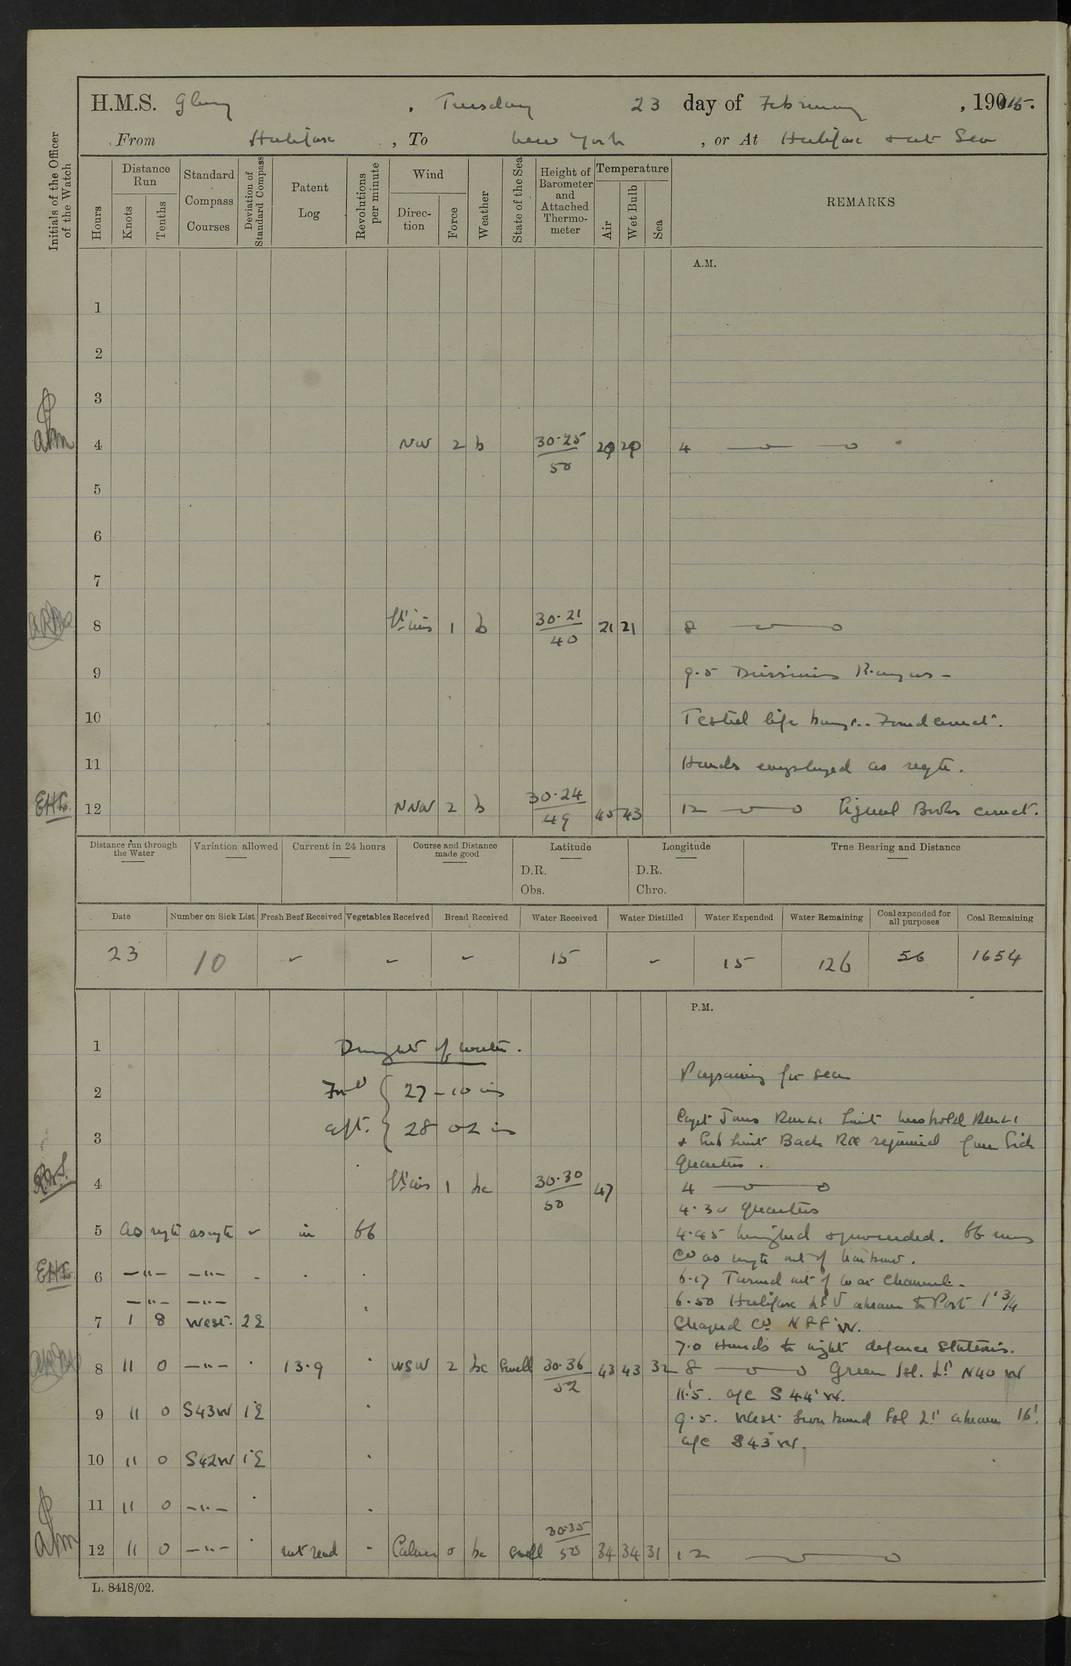 H.M.S. Glory, Tuesday 23 day of February, 190 15.
From Halifax, To New York, or At Halifax & at Sea
Initials of the Officer of the Watch
Hours
Distance Run
Knots
Tenths
Standard Compass Courses
Deviation of Standard Compass
Patent Log
Revolutions per minute
Wind
Direction
Force
Weather
State of the Sea
Height of Barometer and Attached Thermometer
Temperature
Air
Wet Bulb
Sea
REMARKS
A.M.
1
2
3
4 NW 2 b 30·25 50 29 29 4
5
6
7
8 1 b 30·21 40 21 21 8
9 9·5 Divisions Prayers –
10 Tested life buoys. Found correct.
11 Hands employed as reqte.
EHL 12 NNW 2 b 30·24 49 45 43 12 Signal Books correct.
Distance run through the Water
Variation allowed
Current in 24 hours
Course and Distance made good
Latitude
D.R.
Obs.
Longitude
D.R.
Chro.
True Bearing and Distance
Date
Number on Sick List
Fresh Beef Received
Vegetables Received
Bread Received
Water Received
Water Distilled
Water Expended
Water Remaining
Coal expended for all purposes
Coal Remaining
23 10 – – – 15 – 15 126 56 1654
P.M.
1 Draught of water.
2 For'd 27 – 10 ins
Preparing for sea
aft. 28 02 in
3
& Sub Lieut Back RCN rejoined from Sick
Quarters.
4 1 bc 30·30 50 47 4
4·30 Quarters
5 as reqte as reqte – in 66 4·45 Weighed & proceeded. 66 revs
Co as reqte out of harbour.
EHL 6 –"– –"– 6·17 Turned out of War Channel.
–"– –"– 6·50 Halifax Lt V abeam to Port 1' 3/4
7 1 8 West. 2E Shaped Co N88°W.
7·0 Hands to night defence Stations.
8 11 0 –"– 13·9 WSW 2 bc Swell 30·36 52 43 43 32 8 Green Isl. Lt N40 W
11'·5. a/c S 44° W.
9 11 0 S43W 1°E 9·5. West Ironbound Isl Lt abeam 16'.
a/c S43°W.
10 11 0 S42W 1°E
11 11 0 –"–
12 11 0 –"– not read Calm 0 bc Swell 30·35 50 34 34 31 12
L. 8418/02.